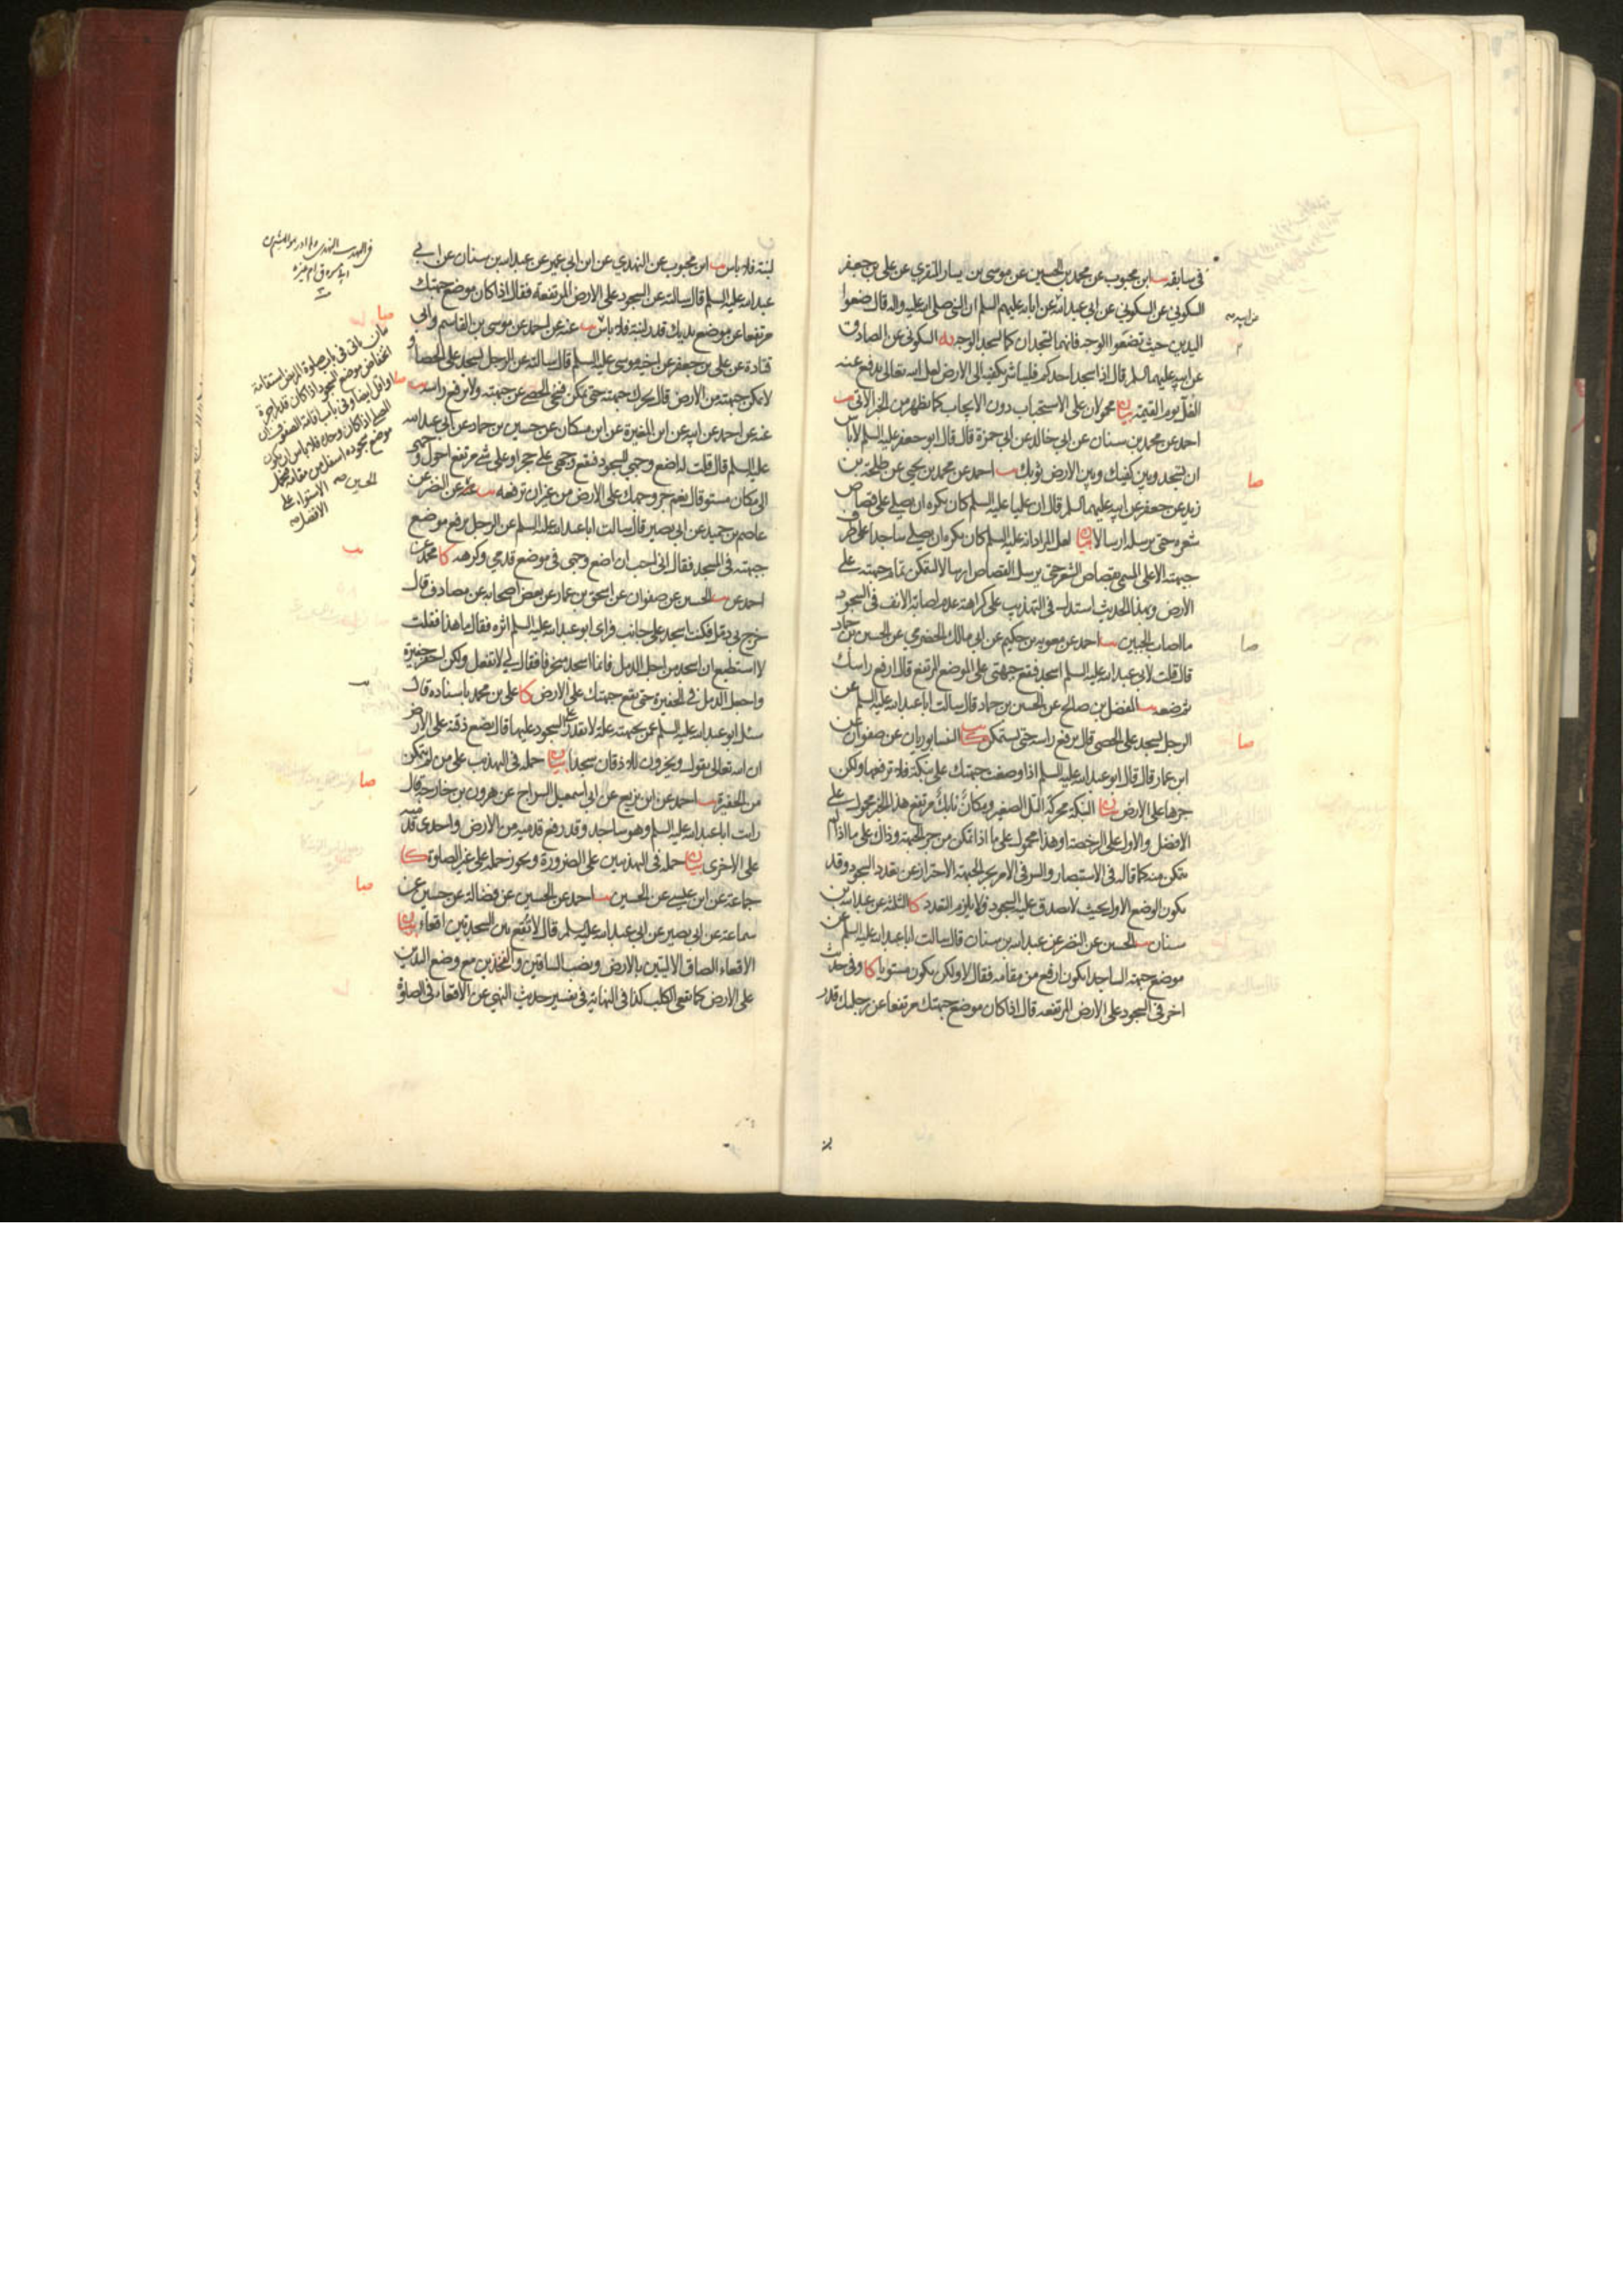 في سابقه يب ابن محبوب عن محمد بن الحسين عن موسى بن يسار المنقري عن علي بن جعفر
السكوني عن السكوني عن ابي عبدالله عن ابائه عليهم السلم ان النبي صلى الله عليه واله قال ضعوا
اليدين حيث تضعوا الوجه فانهما تسجدان كما يسجد الوجه يه السكوني عن الصادق
عن ابيه عليهما السلم قال اذا سجد احدكم فليباشر بكفيه الى الارض لعل الله تعالى يدفع عنه
الغل يوم القيمة بيان محمولان على الاستحباب دون الايجاب كما يظهر من الخبر الاتي يب
احمد عن محمد بن سنان عن ابي خالد عن ابي حمزة قال قال ابو جعفر عليه السلم لا باس
ان تسجد وبين كفيك وبين الارض ثوبك يب احمد عن محمد بن يحيى عن طلحة بن
زيد عن جعفر عن ابيه عليهما السلم قال ان عليا عليه السلم كان يكره ان يصلي على قصاص
شعره حتى يرسله ارسالا بيان لعل المراد انه عليه السلم كان يكره ان يصلي ساجدا على طرف
جبهته الاعلى المسمى بقصاص الشعر حتى يرسل القصاص ارسالا ليتمكن تمام جبهته على
الارض وبهذا الحديث استدل في التهذيب على كراهة عدم اصابة الانف في السجود
ما اصاب الجبين يب احمد عن معويه بن حكيم عن ابي مالك الحضرمي عن الحسين بن حماد
قال قلت لابي عبد الله عليه السلم اسجد فتقع جبهتي على الموضع المرتفع قال ارفع راسك
ثم ضعه يب المفضل بن صالح عن الحسين بن حماد قال سالت ابا عبدالله عليه السلم عن
الرجل يسجد على الحصى قال يرفع راسه حتى يستمكن كا يب النيسابوريان عن صفوان عن
ابن عمار قال قال ابو عبدالله عليه السلم اذا وضعت جبهتك على نبكة فلا ترفعها ولكن
جرها على الارض بيان النبكة محركة التل الصغير ومكان نابك مرتفع هذا الخبر محمول على
الافضل والاول على الرخصة او هذا محمول على ما اذا تمكن من جر الجبهة وذاك على ما اذا لم
يتمكن منه كما قاله في الاستبصار والسر في الامر بجر الجبهة الاحتراز عن تعدد السجود وقد
يكون الوضع الاول بحيث لا يصدق عليه السجود فلا يلزم التعدد كا الثلثة عن عبدالله بن
سنان يب الحسين عن النضر عن عبدالله بن سنان قال سالت ابا عبدالله عليه السلم عن
موضع جبهة الساجد ايكون ارفع من مقامه فقال لا ولكن يكون مستويا كا وفي حديث
اخر في السجود على الارض المرتفعه قال اذا كان موضع جبهتك مرتفعا عن رجليك قدر
عن ابيه
صا
صا
صا
لبنة فلا باس يب ابن محبوب عن النهدي عن ابن ابي عمير عن عبدالله بن سنان عن ابي
عبد الله عليه السلم قال سالته عن السجود على الارض المرتفعة فقال اذا كان موضع جبهتك
مرتفعا عن موضع بدنك قدر لبنة فلا باس يب عنه عن احمد عن موسى بن القاسم وابي
قتادة عن علي بن جعفر عن اخيه موسى عليه السلم قال سالته عن الرجل يسجد على الحصا و
لا يمكن جبهته من الارض قال يحرك جبهته حتى يتمكن فينحي الحصى عن جبهته ولا يرفع راسه يب
عنه عن احمد عن ابيه عن ابن المغيرة عن ابن مسكان عن حسين بن حماد عن ابي عبدالله
عليه السلم قال قلت له اضع وجهي للسجود فيقع وجهي على حجر او على شي مرتفع احول وجهي
الى مكان مستو قال نعم جر وجهك على الارض من غير ان ترفعه يب عنه عن النضر عن
عاصم بن حميد عن ابي بصير قال سالت ابا عبدالله عليه السلم عن الرجل يرفع موضع
جبهته في المسجد فقال اني احب ان اضع وجهي في موضع قدمي وكرهه كا محمد عن
احمد عن يب الحسين عن صفوان عن اسحق بن عمار عن بعض اصحابه عن مصادف قال
خرج بي دمل فكنت اسجد على جانب فراى ابو عبدالله عليه السلم اثره فقال ما هذا فقلت
لا استطيع ان اسجد من اجل الدمل فانما اسجد منحرفا فقال لي لا تفعل ولكن احفر حفيرة
واجعل الدمل في الحفيرة حتى يقع جبهتك على الارض كا علي بن محمد باسناده قال
سئل ابو عبدالله عليه السلم عمن بجبهته علة لا يقدر على السجود عليها قال يضع ذقنه على الارض
ان الله تعالى يقول ويخرون للاذقان سجدا بيان حمله في التهذيب على من لم يتمكن
من الحفيرة يب احمد عن ابن بزيع عن ابي اسمعيل السراج عن هرون بن خارجة قال
رايت ابا عبدالله عليه السلم وهو ساجد وقد رفع قدميه من الارض واحدى قدميه
على الاخرى بيان حمله في التهذيبين على الضرورة ويجوز حمله على غير الصلوة كا
جماعة عن ابن عيسى عن الحسين يب احمد عن الحسين عن فضالة عن حسين عن
سماعة عن ابي بصير عن ابي عبدالله عليه السلم قال لا تقع بين السجدتين اقعاء بيان
الاقعاء الصاق الاليتين بالارض ونصب الساقين والفخذين مع وضع اليدين
على الارض كما يقعي الكلب كذا في النهاية في تفسير حديث النهي عن الاقعاء في الصلوة
صا
ياتي في باب صلوة المريض استقامة
انخفاض موضع السجود اذا كان قدر اجرة
او اقل ايضا وفي باب اقامة الصفوف ان
المصلي اذا كان وحده فلا باس ان يكون
موضع سجوده اسفل من مقامه فيحمل
الاستواء على
الافضل
يب
صا
صا